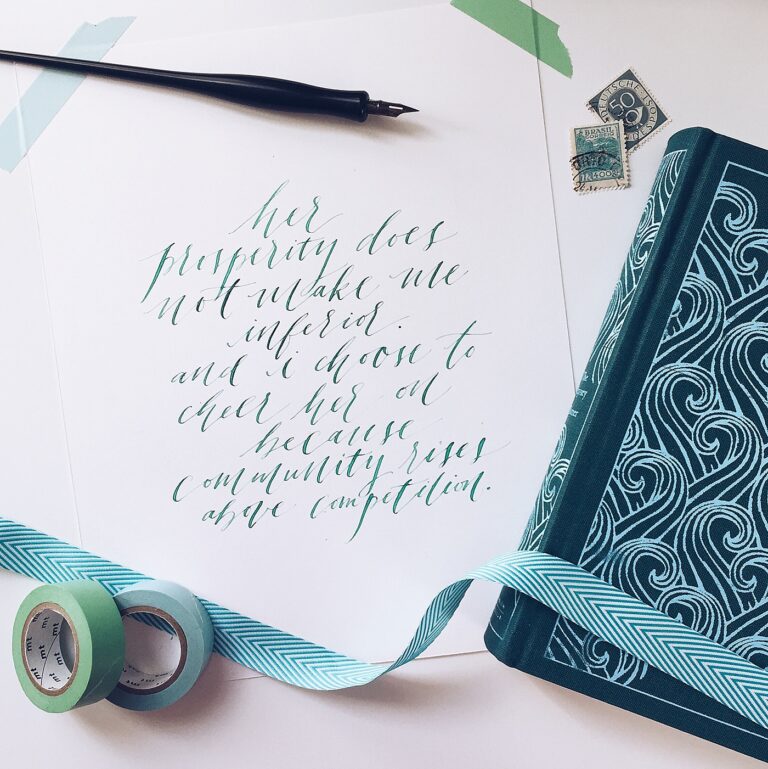 her
prosperity does
not make me
inferior.
and i choose to
cheer her on
because
community rises
above competition.
DEUTSCHE
50
BRASIL
CORREIO
mt
mt
mt